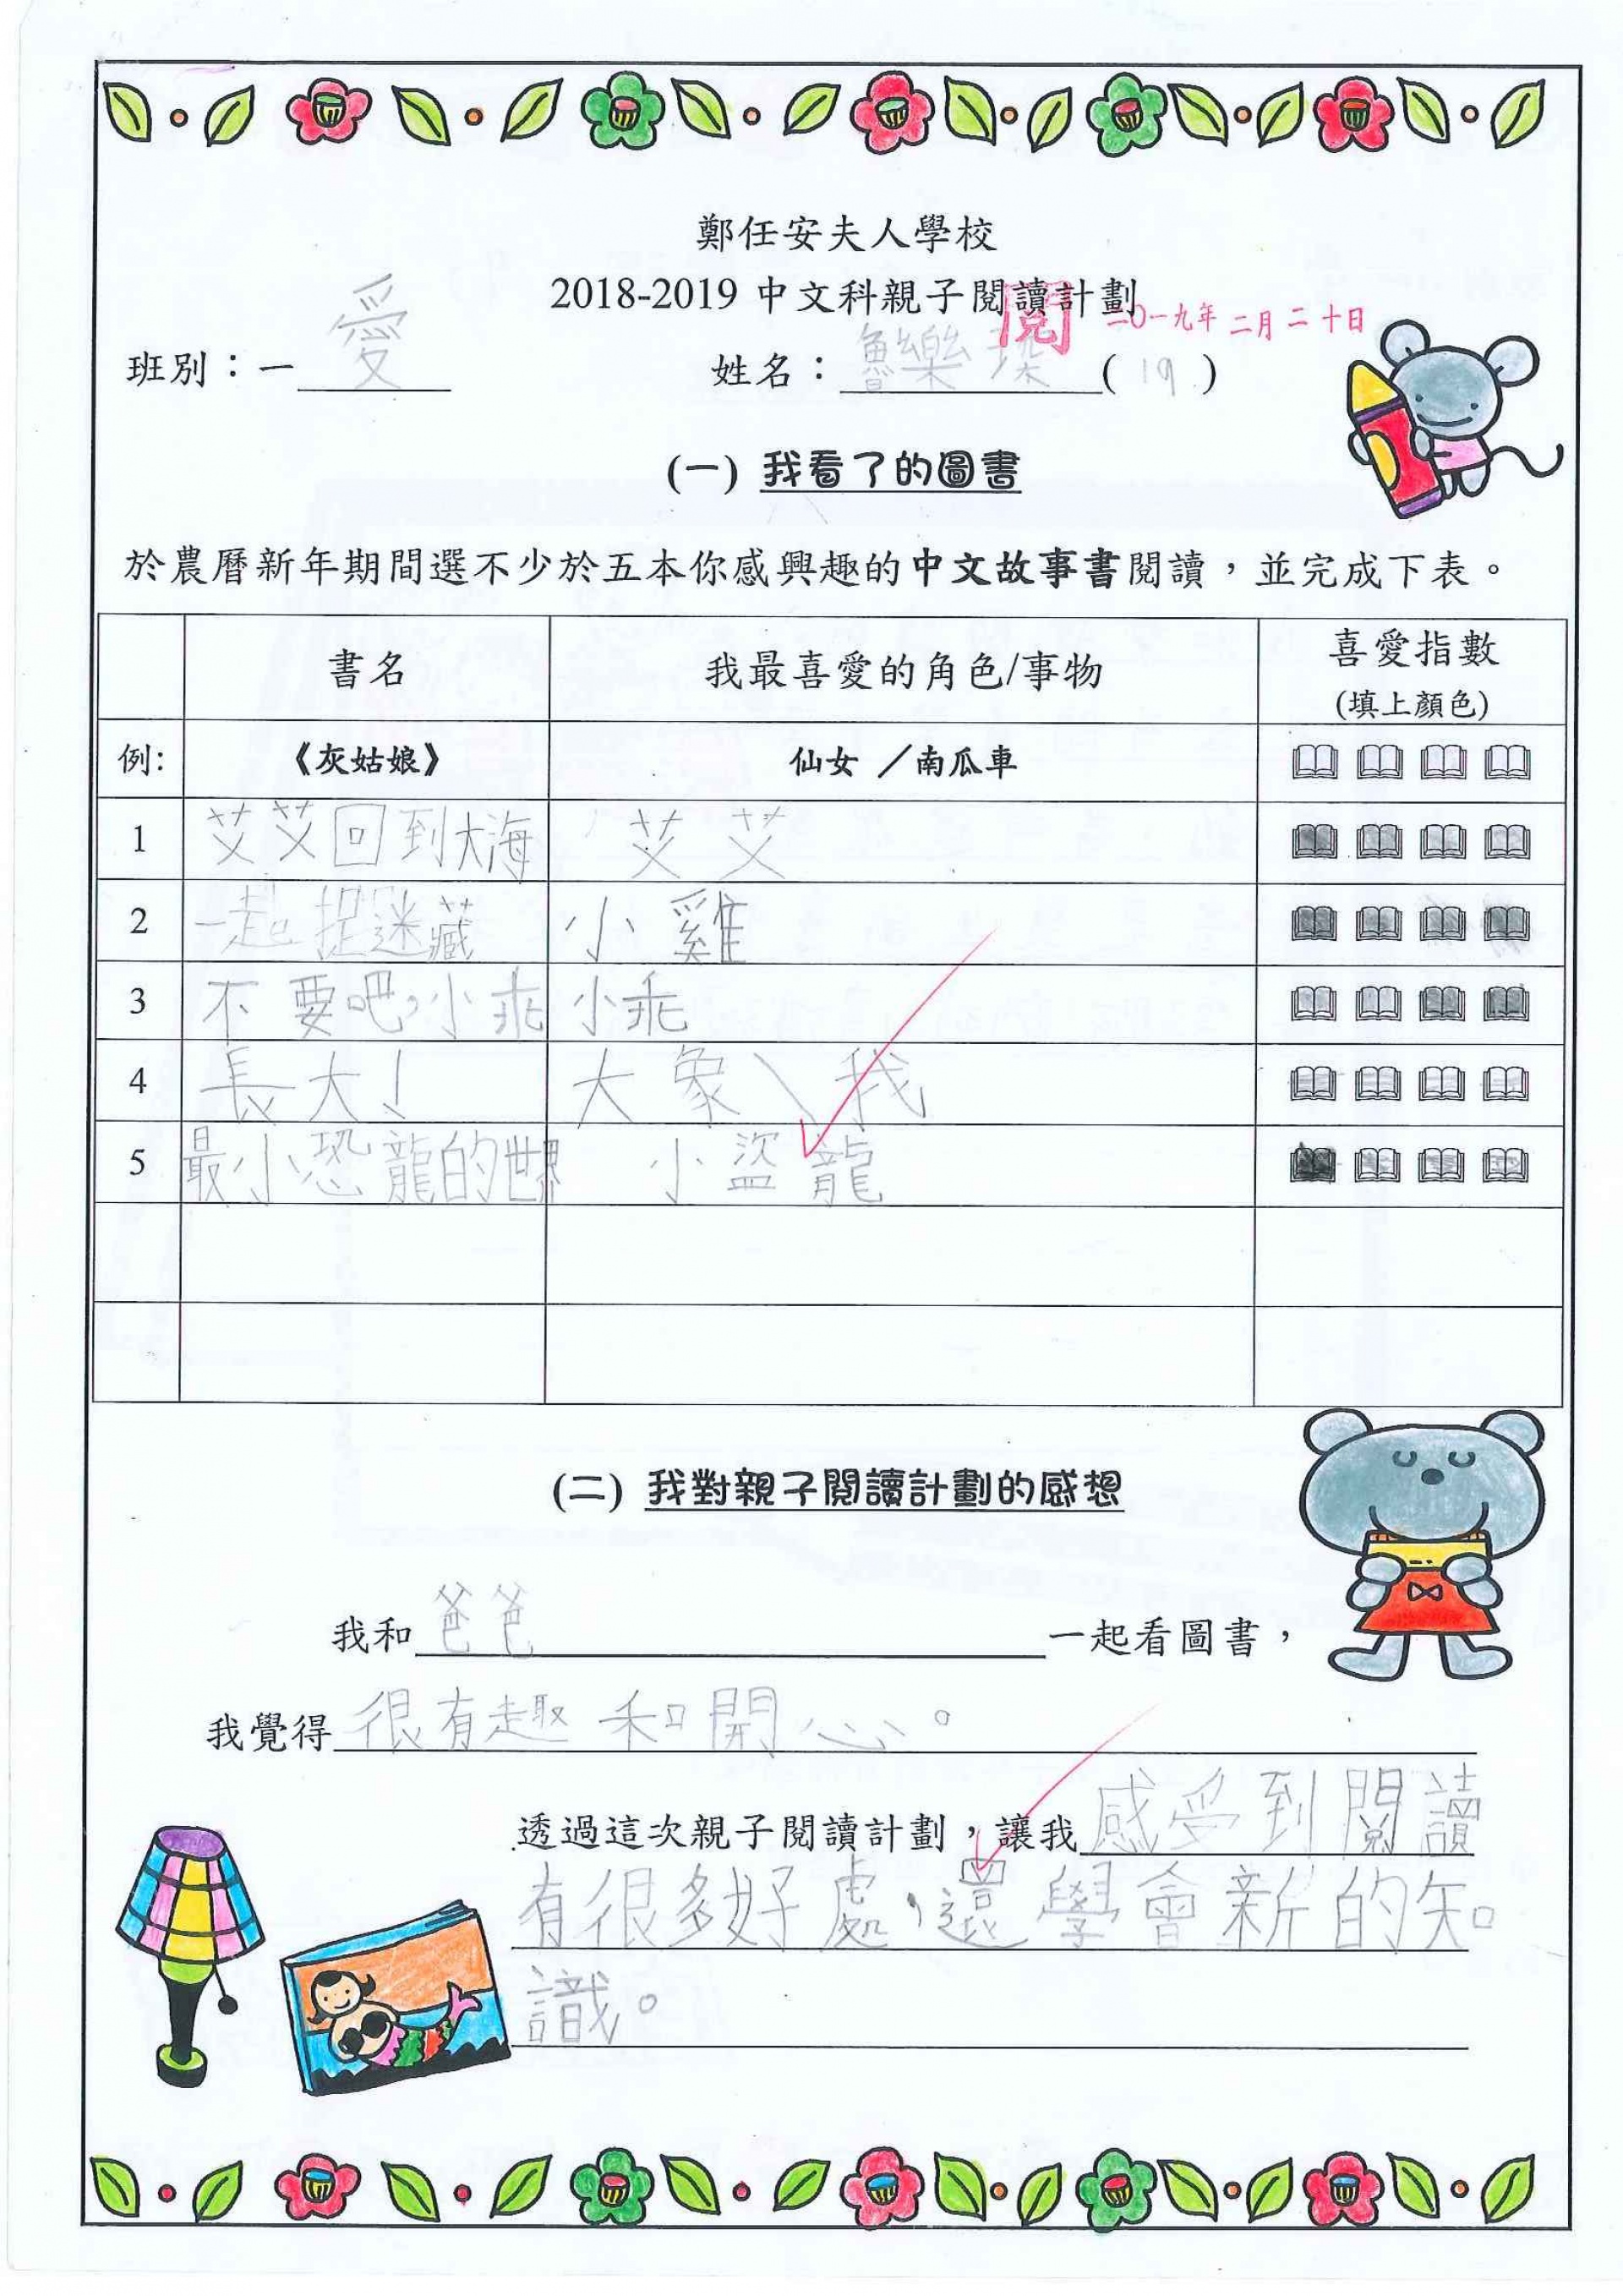 鄭任安夫人學校
2018-2019 中文科親子閱讀計劃
閱 二〇一九年二月二十日
班別：一 愛 姓名： 魯樂 ( 19 )
(一) 我看了的圖書
於農曆新年期間選不少於五本你感興趣的中文故事書閱讀，並完成下表。
書名 我最喜愛的角色/事物 喜愛指數
(填上顏色)
例: 《灰姑娘》 仙女 ／南瓜車
1 艾艾回到大海 艾艾
2 一起捉迷藏 小雞
3 不要吧，小乖 小乖
4 長大！ 大象、我
5 最小恐龍的世界 小盜龍
(二) 我對親子閱讀計劃的感想
我和 爸爸 一起看圖書，
我覺得 很有趣和開心。
透過這次親子閱讀計劃，讓我 感受到閱讀
有很多好處，還學會新的知
識。